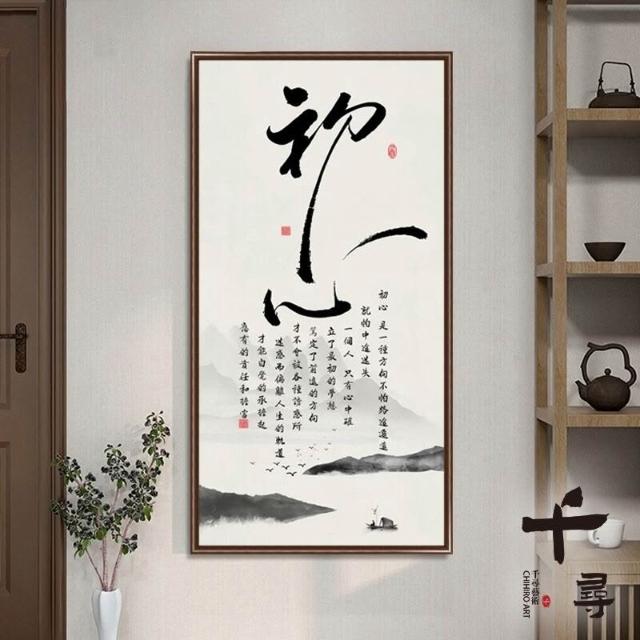 初心
初心 是一種方向不怕路途遙遠
就怕中途迷失
一個人 只有心中確
立了最初的夢想
篤定了前進的方向
才不會被各種誘惑所
迷惑而偏離人生的軌道
才能自覺的承擔起
應有的責任和擔當
千尋
千尋藝術
CHIHIRO ART